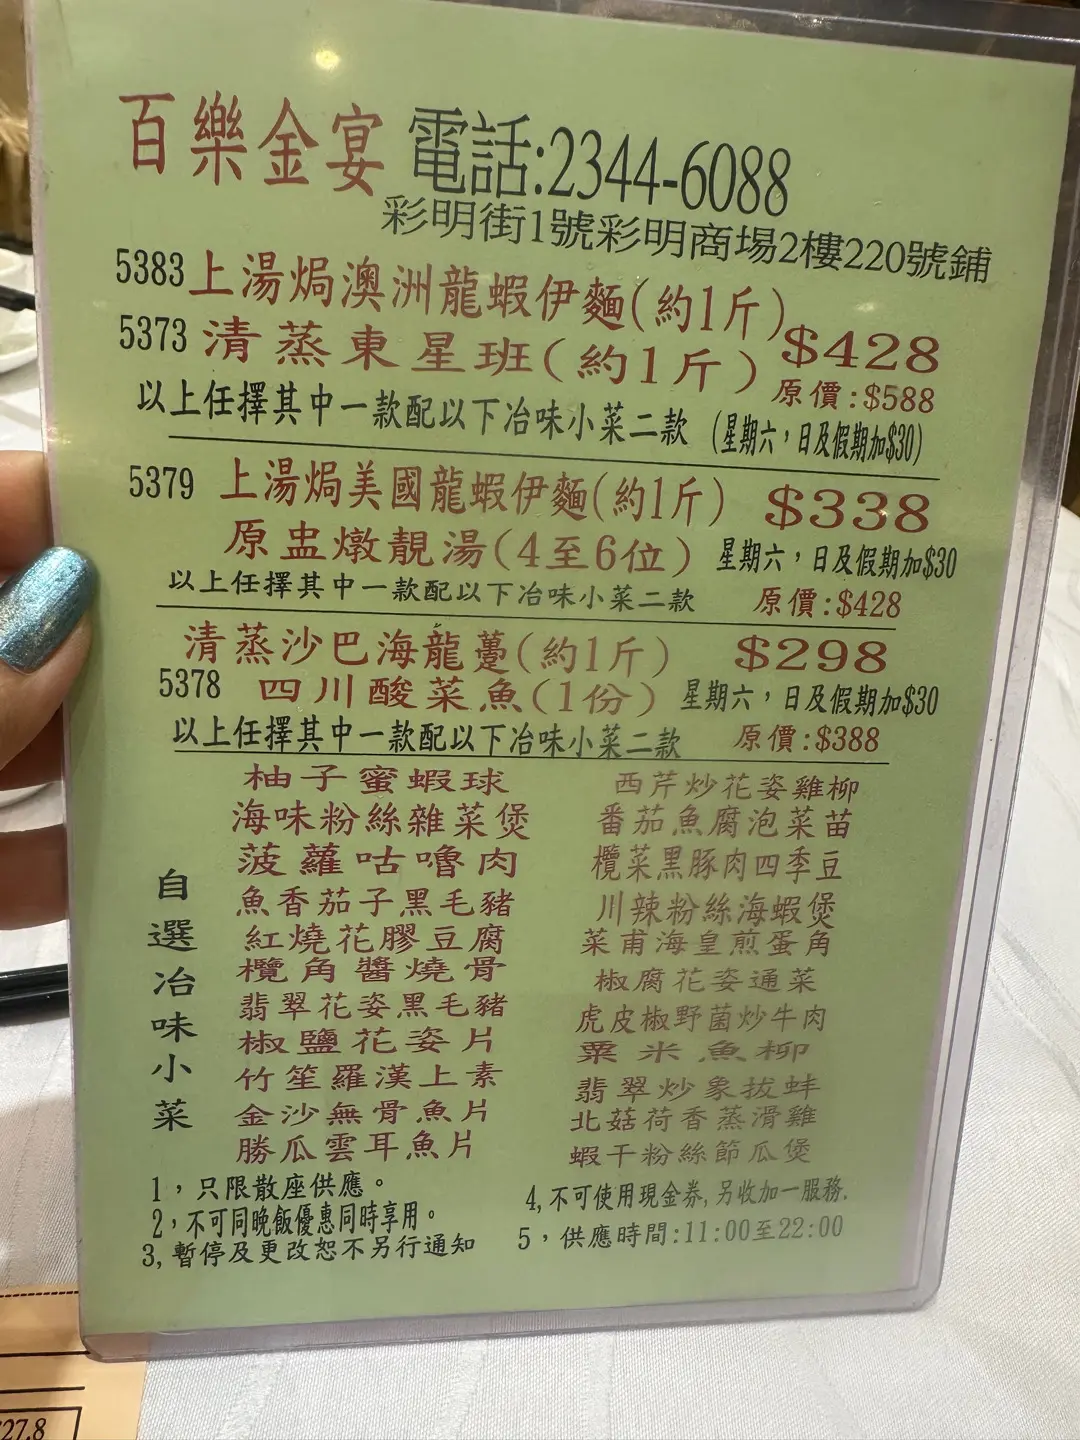 百樂金宴 電話:2344-6088
彩明街1號彩明商場2樓220號鋪
5383 上湯焗澳洲龍蝦伊麵(約1斤)
5373 清蒸東星班(約1斤) $428
原價:$588
以上任擇其中一款配以下冶味小菜二款 (星期六，日及假期加$30)
5379 上湯焗美國龍蝦伊麵(約1斤) $338
原盅燉靚湯(4至6位) 星期六，日及假期加$30
以上任擇其中一款配以下冶味小菜二款 原價:$428
清蒸沙巴海龍躉(約1斤) $298
5378 四川酸菜魚(1份) 星期六，日及假期加$30
以上任擇其中一款配以下冶味小菜二款 原價:$388
自選冶味小菜
柚子蜜蝦球
海味粉絲雜菜煲
菠蘿咕嚕肉
魚香茄子黑毛豬
紅燒花膠豆腐
欖角醬燒骨
翡翠花姿黑毛豬
椒鹽花姿片
竹笙羅漢上素
金沙無骨魚片
勝瓜雲耳魚片
西芹炒花姿雞柳
番茄魚腐泡菜苗
欖菜黑豚肉四季豆
川辣粉絲海蝦煲
菜甫海皇煎蛋角
椒腐花姿通菜
虎皮椒野菌炒牛肉
粟米魚柳
翡翠炒象拔蚌
北菇荷香蒸滑雞
蝦干粉絲節瓜煲
1，只限散座供應。
2，不可同晚飯優惠同時享用。
3, 暫停及更改恕不另行通知
4, 不可使用現金券, 另收加一服務.
5，供應時間:11:00至22:00
27.8